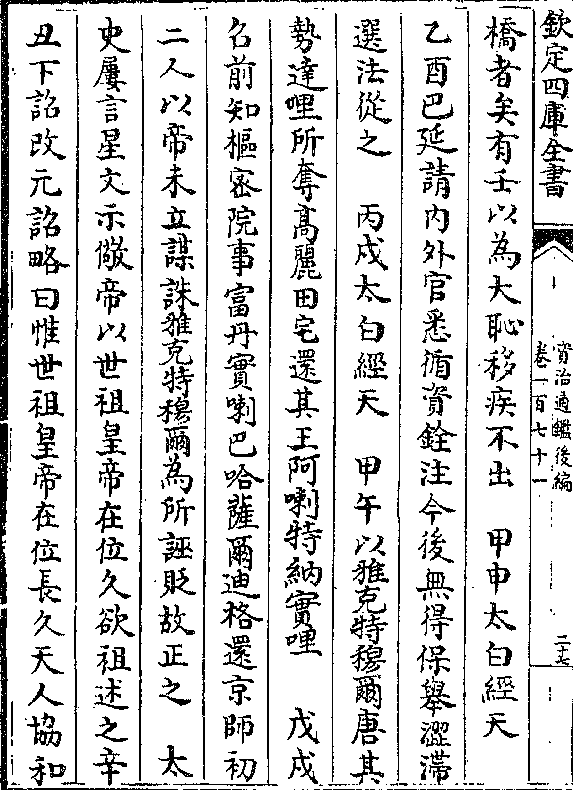 欽定四庫全書
資治通鑑後編
卷一百七十一
二十七
橋者矣有壬以為大恥移疾不出　甲申太白經天
乙酉巴延請內外官悉循資銓注今後無得保舉澀滯
選法從之　丙戌太白經天　甲午以雅克特穆爾唐其
勢達哩所奪高麗田宅還其王阿喇特納實哩　戊戌
名前知樞密院事富丹實喇巴哈薩爾迪格還京師初
二人以帝未立謀誅雅克特穆爾為所誣貶故正之　太
史屢言星文示儆帝以世祖皇帝在位久欲祖述之辛
丑下詔改元詔略曰惟世祖皇帝在位長久天人協和